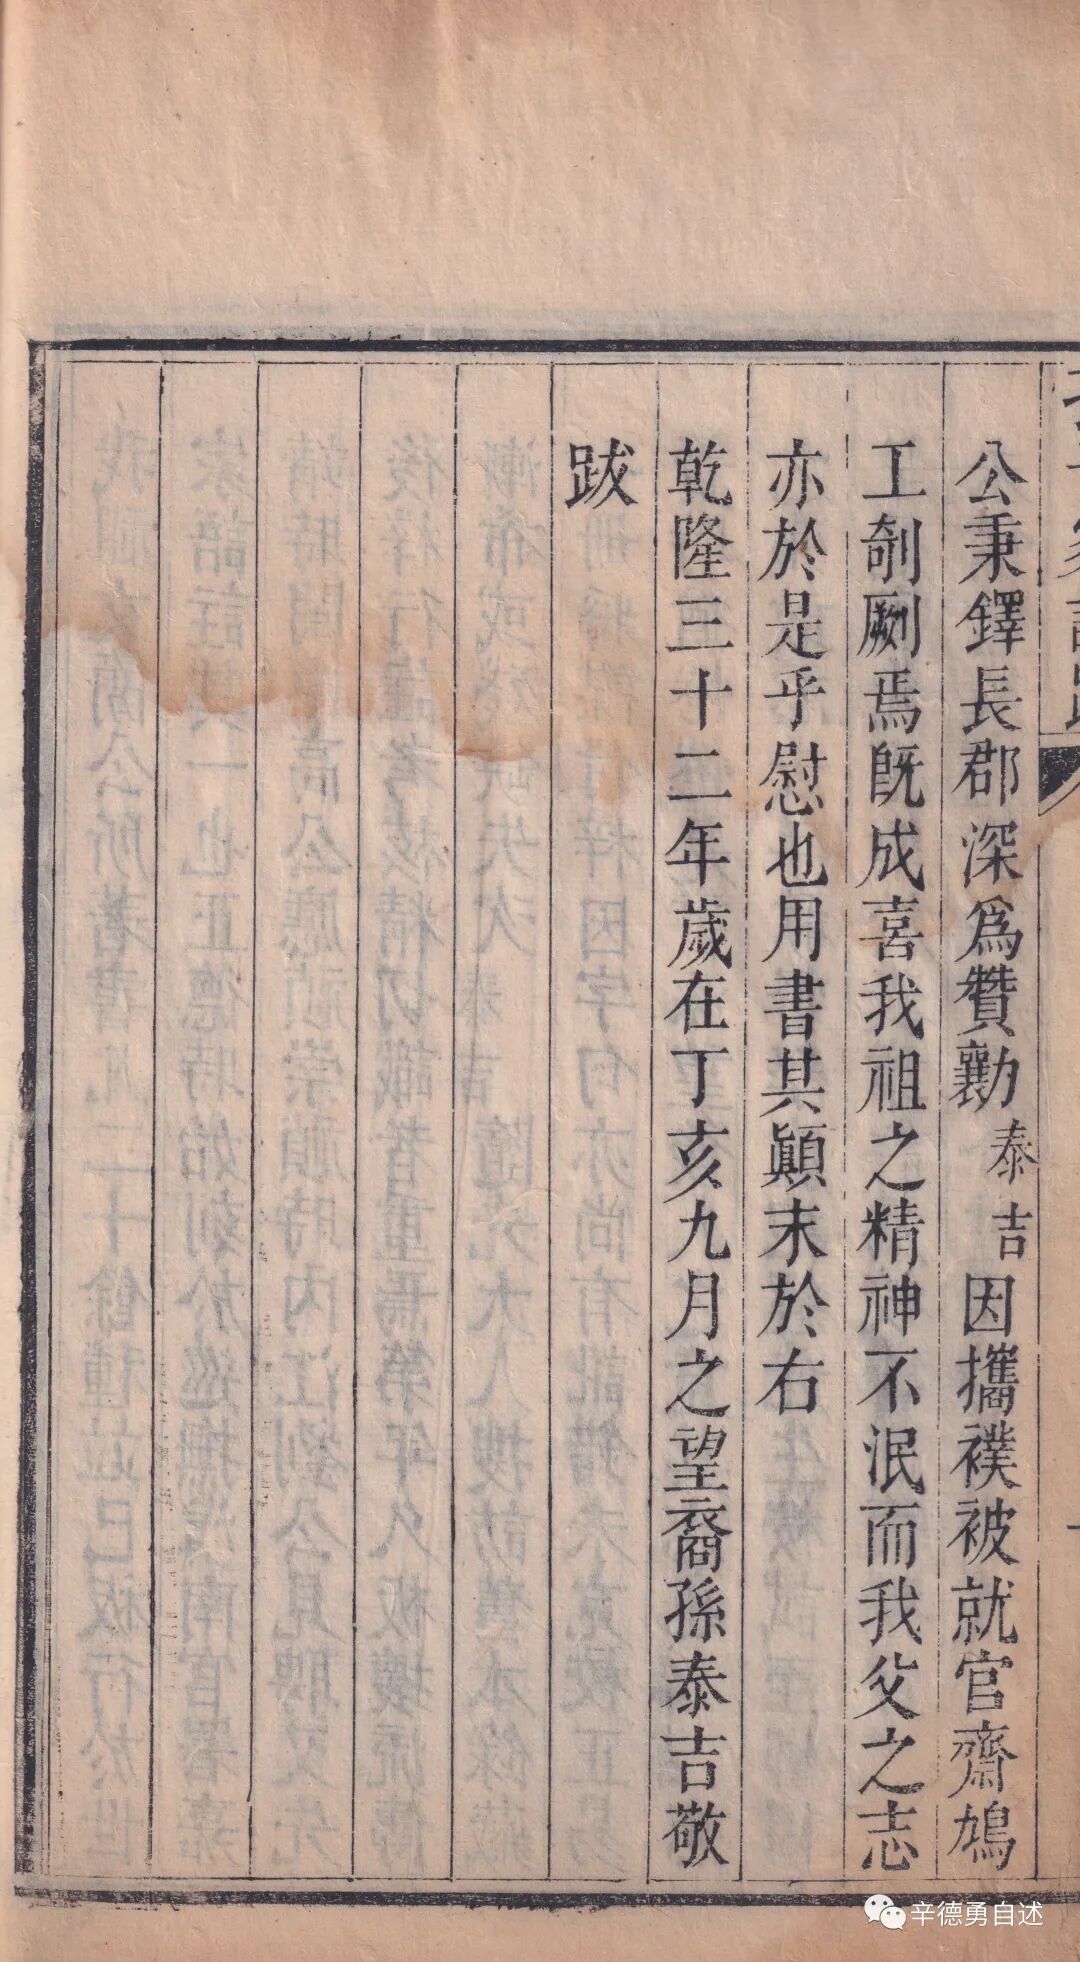 公秉鐸長郡深爲贊勷泰吉因攜襆被就官齋鳩
工剞劂焉旣成喜我祖之精神不泯而我父之志
亦於是乎慰也用書其顚末於右
乾隆三十二年歲在丁亥九月之望裔孫泰吉敬
跋
辛德勇自述